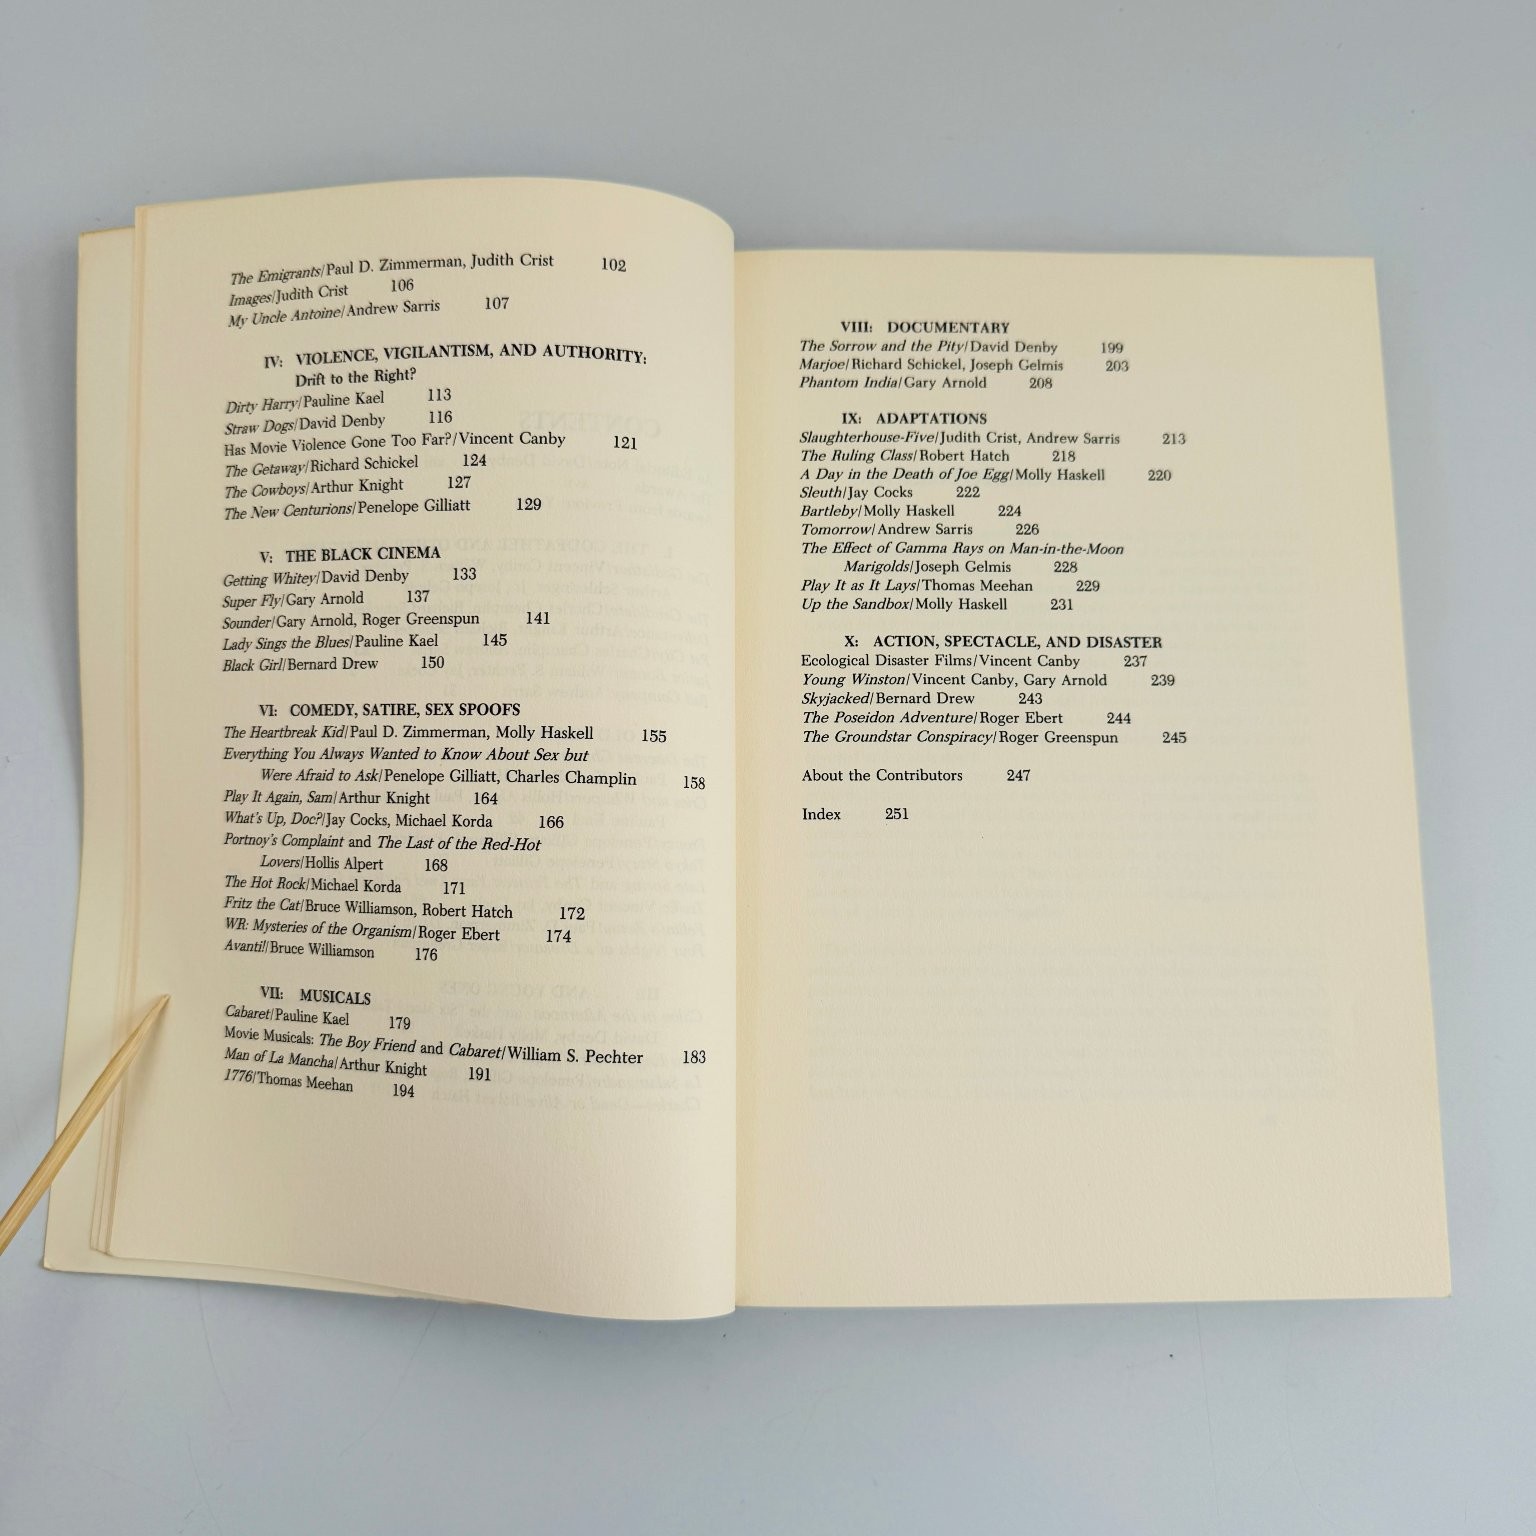 The Emigrants/Paul D. Zimmerman, Judith Crist 102
Images/Judith Crist 106
My Uncle Antoine/Andrew Sarris 107
IV: VIOLENCE, VIGILANTISM, AND AUTHORITY:
Drift to the Right?
Dirty Harry/Pauline Kael 113
Straw Dogs/David Denby 116
Has Movie Violence Gone Too Far?/Vincent Canby 121
The Getaway/Richard Schickel 124
The Cowboys/Arthur Knight 127
The New Centurions/Penelope Gilliatt 129
V: THE BLACK CINEMA
Getting Whitey/David Denby 133
Super Fly/Gary Arnold 137
Sounder/Gary Arnold, Roger Greenspun 141
Lady Sings the Blues/Pauline Kael 145
Black Girl/Bernard Drew 150
VI: COMEDY, SATIRE, SEX SPOOFS
The Heartbreak Kid/Paul D. Zimmerman, Molly Haskell 155
Everything You Always Wanted to Know About Sex but
Were Afraid to Ask/Penelope Gilliatt, Charles Champlin 158
Play It Again, Sam/Arthur Knight 164
What's Up, Doc?/Jay Cocks, Michael Korda 166
Portnoy's Complaint and The Last of the Red-Hot
Lovers/Hollis Alpert 168
The Hot Rock/Michael Korda 171
Fritz the Cat/Bruce Williamson, Robert Hatch 172
WR: Mysteries of the Organism/Roger Ebert 174
Avanti!/Bruce Williamson 176
VII: MUSICALS
Cabaret/Pauline Kael 179
Movie Musicals: The Boy Friend and Cabaret/William S. Pechter 183
Man of La Mancha/Arthur Knight 191
1776/Thomas Meehan 194
VIII: DOCUMENTARY
The Sorrow and the Pity/David Denby 199
Marjoe/Richard Schickel, Joseph Gelmis 203
Phantom India/Gary Arnold 208
IX: ADAPTATIONS
Slaughterhouse-Five/Judith Crist, Andrew Sarris 213
The Ruling Class/Robert Hatch 218
A Day in the Death of Joe Egg/Molly Haskell 220
Sleuth/Jay Cocks 222
Bartleby/Molly Haskell 224
Tomorrow/Andrew Sarris 226
The Effect of Gamma Rays on Man-in-the-Moon
Marigolds/Joseph Gelmis 228
Play It as It Lays/Thomas Meehan 229
Up the Sandbox/Molly Haskell 231
X: ACTION, SPECTACLE, AND DISASTER
Ecological Disaster Films/Vincent Canby 237
Young Winston/Vincent Canby, Gary Arnold 239
Skyjacked/Bernard Drew 243
The Poseidon Adventure/Roger Ebert 244
The Groundstar Conspiracy/Roger Greenspun 245
About the Contributors 247
Index 251